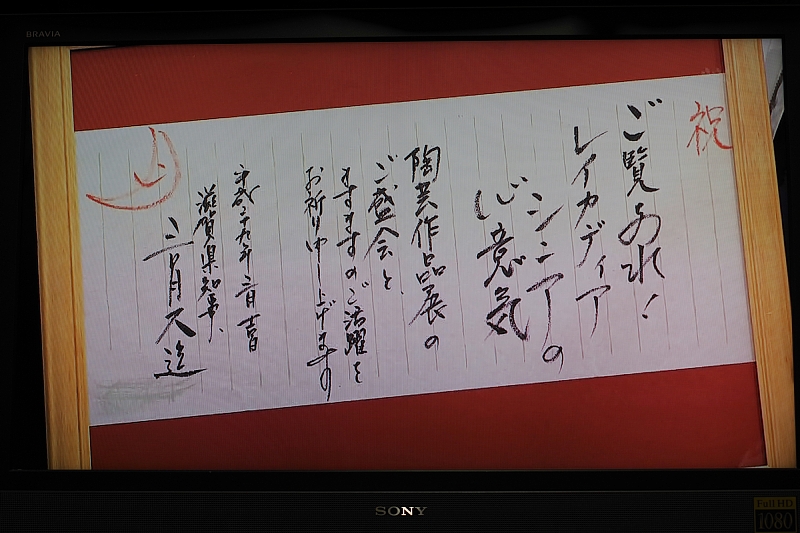 BRAVIA
祝
ご覧あれ!
レイカディア
シニアの
心意気
陶芸作品展の
ご盛会と
ますますのご活躍を
お祈り申し上げます
平成二十九年
滋賀県知事
三日月大造
SONY
Full HD
1080